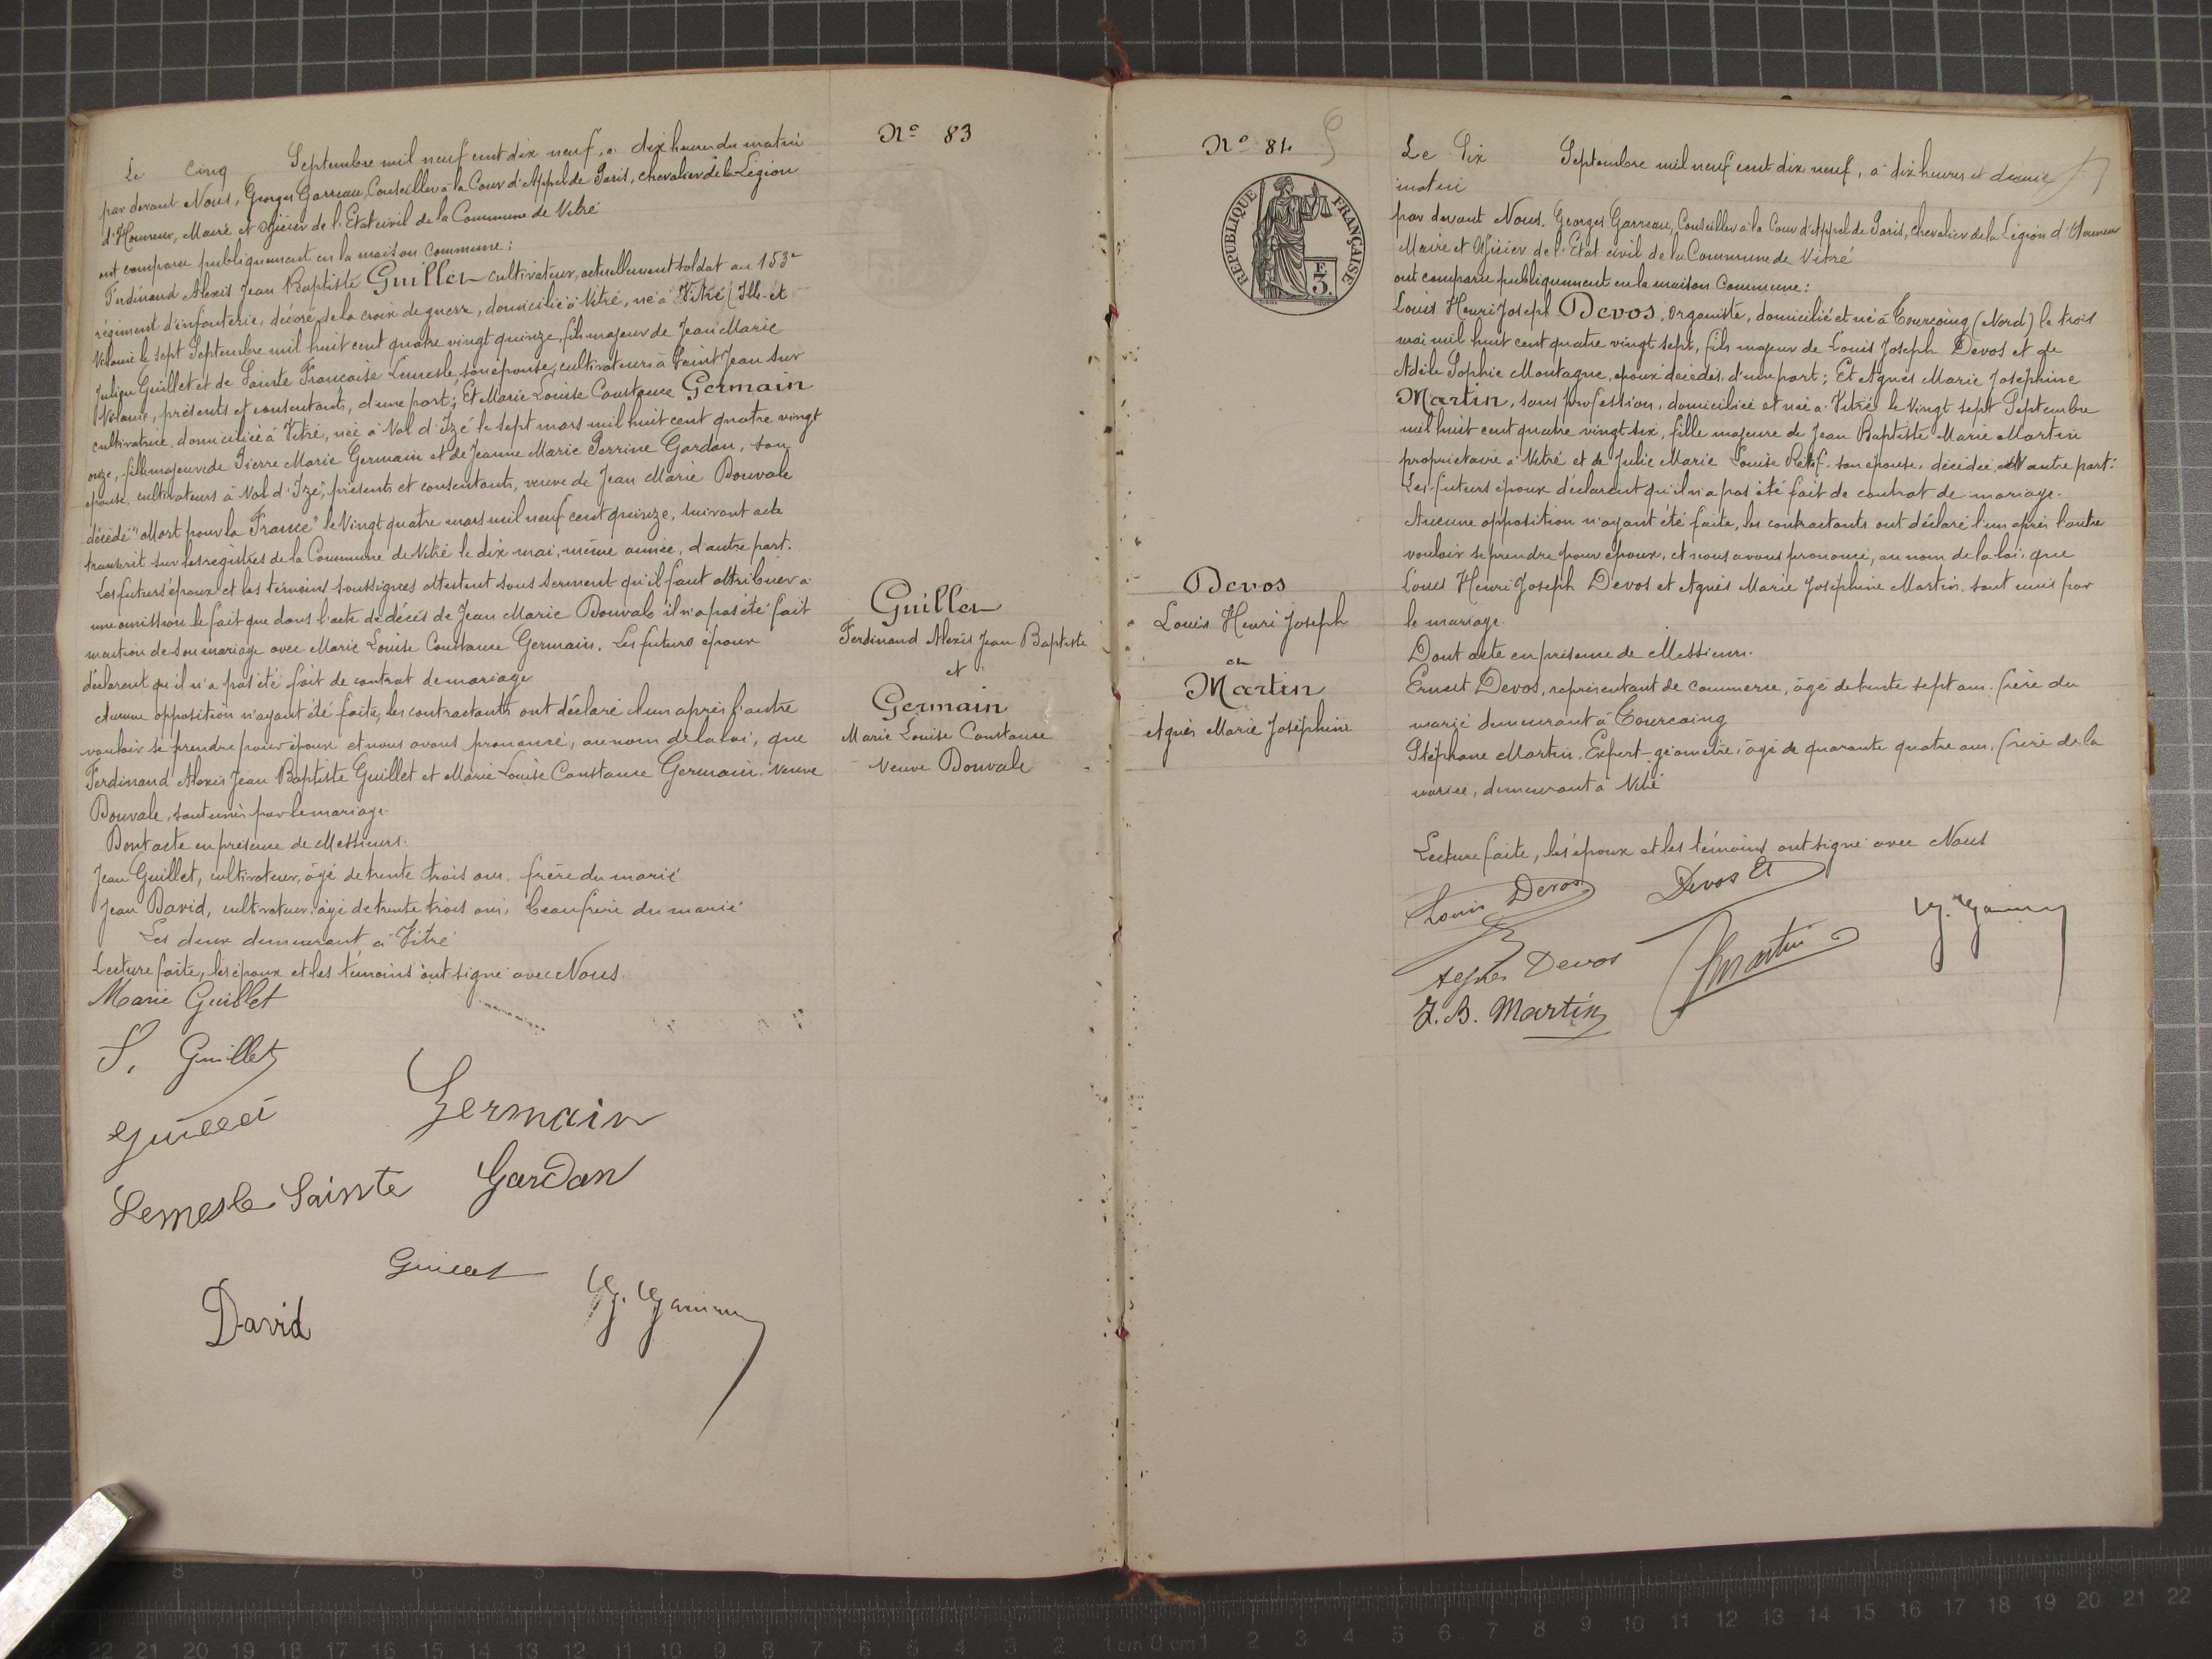 Nº 83
Le Cinq Septembre mil neuf cent dix neuf, à dix heures du matin
par devant Nous, Georges Garreau, Conseiller à la Cour d'Appel de Paris, chevalier de la Légion
d'Honneur, Maire et Officier de l'Etat civil de la Commune de Vitré
ont comparu publiquement en la maison commune :
Ferdinand Alexis Jean Baptiste Guillet cultivateur, actuellement soldat au 153e
régiment d'infanterie, décoré de la croix de guerre, domicilié à Vitré, né à Vitré (Ille-et-
Vilaine le sept Septembre mil huit cent quatre vingt quinze, fils majeur de Jean Marie
Julien Guillet et de Sainte Francoise Lemesle son épouse, cultivateurs à Saint Jean sur
Vilaine, présents et consentants, d'une part ; Et Marie Louise Constance Germain
cultivatrice, domiciliée à Vitré, née à Val d'Izé le sept mars mil huit cent quatre vingt
onze, fille majeure de Pierre Marie Germain et de Jeanne Marie Perrine Gardan, son
épouse, cultivateurs à Val d'Izé, présents et consentants, veuve de Jean Marie Bouvale
décédé "Mort pour la France" le Vingt quatre mars mil neuf cent quinze, suivant acte
transcrit sur les registres de la Commune de Vitré le dix mai, même année, d'autre part.
Les futurs époux et les témoins soussignés attestent sous serment qu'il faut attribuer à
une omission le fait que dans l'acte de décès de Jean Marie Bouvale il n'a pas été fait
mention de son mariage avec Marie Louise Constance Germain. Les futurs époux
déclarent qu'il n'a pas été fait de contrat de mariage
Aucune opposition n'ayant été faite, les contractants ont déclaré l'un après l'autre
vouloir se prendre pour époux et nous avons prononcé, au nom de la loi, que
Ferdinand Alexis Jean Baptiste Guillet et Marie Louise Constance Germain, veuve
Bouvale, sont unis par le mariage.
Dont acte en présence de Messieurs.
Jean Guillet, cultivateur, âgé de trente trois ans, frère du marié
Jean David, cultivateur, âgé de trente trois ans, beau frère du marié
Les deux demeurant à Vitré
Lecture faite, les époux et les témoins ont signé avec Nous.
Guillet
Ferdinand Alexis Jean Baptiste
et
Germain
Marie Louise Constance
Veuve Bouvale
Marie Guillet
Guillet
Guillet
Germain
Lemesle Sainte
Gardan
Guillet
David
G. Garreau
Nº 84
REPUBLIQUE FRANÇAISE
F
3.
Le Six Septembre mil neuf cent dix neuf, à dix heures et demie
matin
par devant Nous, Georges Garreau, Conseiller à la Cour d'Appel de Paris, chevalier de la Légion d'Honneur
Maire et Officier de l'Etat civil de la Commune de Vitré
ont comparu publiquement en la maison commune :
Louis Henri Joseph Devos, organiste, domicilié et né à Tourcoing (Nord) le trois
mai mil huit cent quatre vingt sept, fils majeur de Louis Joseph Devos et de
Adèle Sophie Montagne, époux décédés, d'une part ; Et Agnès Marie Joséphine
Martin, sans profession, domiciliée et née à Vitré le Vingt sept Septembre
mil huit cent quatre vingt six, fille majeure de Jean Baptiste Marie Martin
propriétaire à Vitré et de Julie Marie Louise Retif, son épouse, décédée, d'autre part.
Les futurs époux déclarent qu'il n'a pas été fait de contrat de mariage.
Aucune opposition n'ayant été faite, les contractants ont déclaré l'un après l'autre
vouloir se prendre pour époux, et nous avons prononcé, au nom de la loi, que
Louis Henri Joseph Devos et Agnès Marie Joséphine Martin, sont unis par
le mariage.
Dont acte en présence de Messieurs.
Ernest Devos, représentant de commerce, âgé de trente sept ans, frère du
marié demeurant à Tourcoing
Stéphane Martin, Expert-géomètre, âgé de quarante quatre ans, frère de la
mariée, demeurant à Vitré
Lecture faite, les époux et les témoins ont signé avec Nous
Devos
Louis Henri Joseph
et
Martin
Agnès Marie Joséphine
Louis Devos
Devos Et
Agnès Devos
Martin
G. Garreau
J. B. Martin
22 21 20 19 18 17 16 15 14 13 12 11 10 9 8 7 6 5 4 3 2 1 cm 0 cm 1 2 3 4 5 6 7 8 9 10 11 12 13 14 15 16 17 18 19 20 21 22